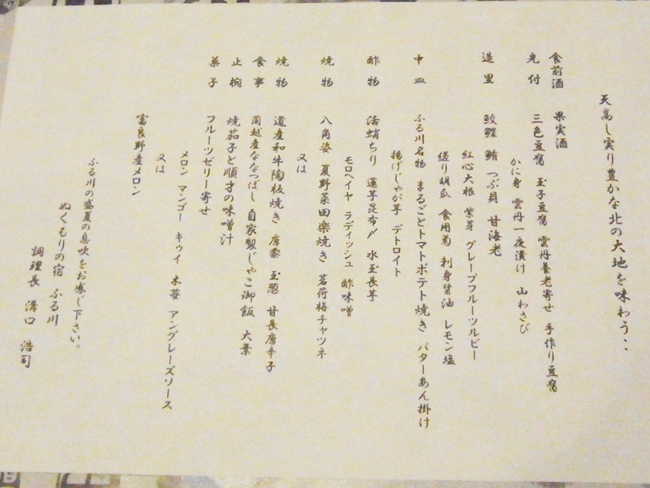 天高し実り豊かな北の大地を味わう‥
食前酒 果実酒
先付 三色豆腐 玉子豆腐 雲丹養老寄せ 手作り豆腐
かに身 雲丹一夜漬け 山わさび
造里 鮫鰈 鯖 つぶ貝 甘海老
紅心大根 紫芽 グレープフルーツルビー
縒り胡瓜 食用菊 刺身醤油 レモン塩
中皿 ふる川名物 まるごとトマトポテト焼き バターあん掛け
揚げじゃが芋 デトロイト
酢物 活蛸ちり 蓮芋昆布〆 水玉長芋
モロヘイヤ ラディイッシュ 酢味噌
焼物 八角姿 夏野菜田楽焼き 茗荷梅チャツネ
又は
焼物 道産和牛陶板焼き 南蛮 玉葱 甘長唐辛子
食事 蘭越産ななつぼし 自家製じゃこ御飯 大葉
止椀 焼茄子と順才の味噌汁
菓子 フルーツゼリー寄せ
メロン マンゴー キウイ 木苺 アングレーズソース
又は
富良野産メロン
ふる川の盛夏の息吹をお感じ下さい。
ぬくもりの宿 ふる川
調理長 溝口 浩司